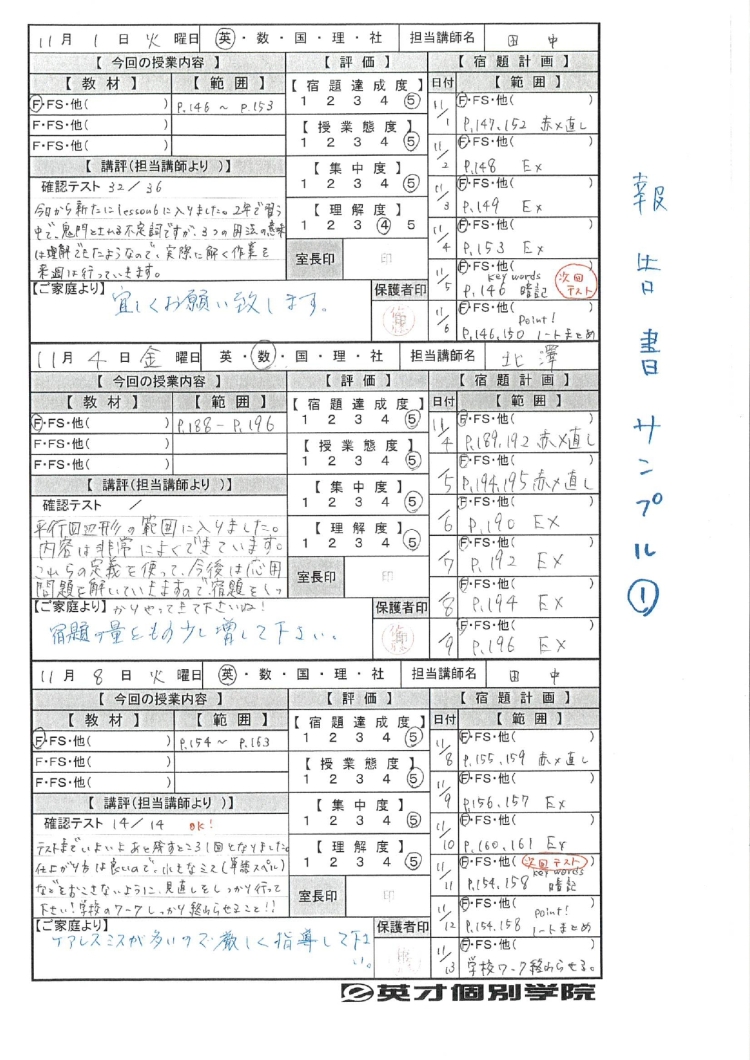 11月 1日 火曜日 英・数・国・理・社 担当講師名 田中
【 今回の授業内容 】 【 評価 】 【 宿題計画 】
【 教材 】 【 範囲 】 【宿題達成度】 日付 【 範囲 】
F・FS・他( ) P.146 ~ P.153 1 2 3 4 5 11/1 F・FS・他( )
P.147,152 赤〆直し
F・FS・他( ) 【授業態度】
F・FS・他( ) 1 2 3 4 5 11/2 F・FS・他( )
P.148 Ex
【 講評(担当講師より )】 【 集中度 】
確認テスト 32/36 1 2 3 4 5 11/3 F・FS・他( )
P.149 Ex
今日から新たにlesson6に入りました。2年で習う
中で、鬼門とされる不定詞ですが、3つの用法の意味
は理解できたようなので、実際に解く作業を
来週は行っていきます。
【 理解度 】
1 2 3 4 5 11/4 F・FS・他( )
P.153 Ex
室長印 印 11/5 F・FS・他( )
key words
P.146 暗記 次回テスト
【ご家庭より】 保護者印 11/6 F・FS・他( )
宜しくお願い致します。
Point!
P.146,150 ノートまとめ
11月 4日 金曜日 英・数・国・理・社 担当講師名 北澤
【 今回の授業内容 】 【 評価 】 【 宿題計画 】
【 教材 】 【 範囲 】 【宿題達成度】 日付 【 範囲 】
F・FS・他( ) P.188-P.196 1 2 3 4 5 11/4 F・FS・他( )
P.189,192 赤〆直し
F・FS・他( ) 【授業態度】
F・FS・他( ) 1 2 3 4 5 /5 F・FS・他( )
P.194,195 赤〆直し
【 講評(担当講師より )】 【 集中度 】
確認テスト / 1 2 3 4 5 /6 F・FS・他( )
P.190 EX
平行四辺形の範囲に入りました。
内容は非常によくできています。
これらの定義を使って、今後は応用
問題を解いていきますので、宿題をしっ
かりやってきて下さいね!
【 理解度 】
1 2 3 4 5 /7 F・FS・他( )
P.192 EX
室長印 印 /8 F・FS・他( )
P.194 EX
【ご家庭より】 保護者印 /9 F・FS・他( )
P.196 EX
宿題の量をもう少し増して下さい、
11月 8日 火曜日 英・数・国・理・社 担当講師名 田中
【 今回の授業内容 】 【 評価 】 【 宿題計画 】
【 教材 】 【 範囲 】 【宿題達成度】 日付 【 範囲 】
F・FS・他( ) P.154 ~ P.163 1 2 3 4 5 11/8 F・FS・他( )
P.155,159 赤〆直し
F・FS・他( ) 【授業態度】
F・FS・他( ) 1 2 3 4 5 11/9 F・FS・他( )
P.156,157 Ex
【 講評(担当講師より )】 【 集中度 】
確認テスト 14/14 OK! 1 2 3 4 5 11/10 F・FS・他( )
P.160,161 Ex
テストまでいよいよあと残すところ1回となりました。
仕上がり方は良いので、小さなミス(単語スペル)
などをおこさないように、見直しをしっかり行って
下さい!学校のワークしっかり終わらせること!!
【 理解度 】
1 2 3 4 5 11/11 F・FS・他( ) 次回テスト
key words
P.154,158 暗記
室長印 印 11/12 F・FS・他( )
Point!
P.154,158 ノートまとめ
【ご家庭より】 保護者印 11/13 F・FS・他( )
学校ワーク終わらせる。
ケアレスミスが多いので厳しく指導して下さ
い。
英才個別学院
報告書サンプル①